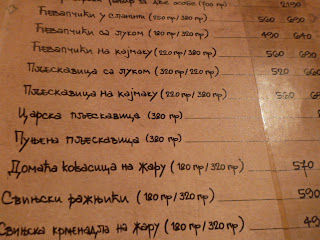 за две особе (900 гр) 2190
Ћевапчићи у сланини (250 гр/380 гр) 560 690
Ћевапчићи са луком (180 гр/320 гр) 490 640
Ћевапчићи на кајмаку (220 гр/380 гр) 560 690
Пљескавица са луком (320 гр/220 гр) 520 660
Пљескавица на кајмаку (220 гр/380 гр) 560
Царска пљескавица (380 гр)
Пуњена пљескавица (380 гр)
Домаћа кобасица на жару (180 гр/320 гр) 570
Свињски ражњићи (180 гр/320 гр) 590
Свињска крменадла на жару (180 гр/320 гр) 49